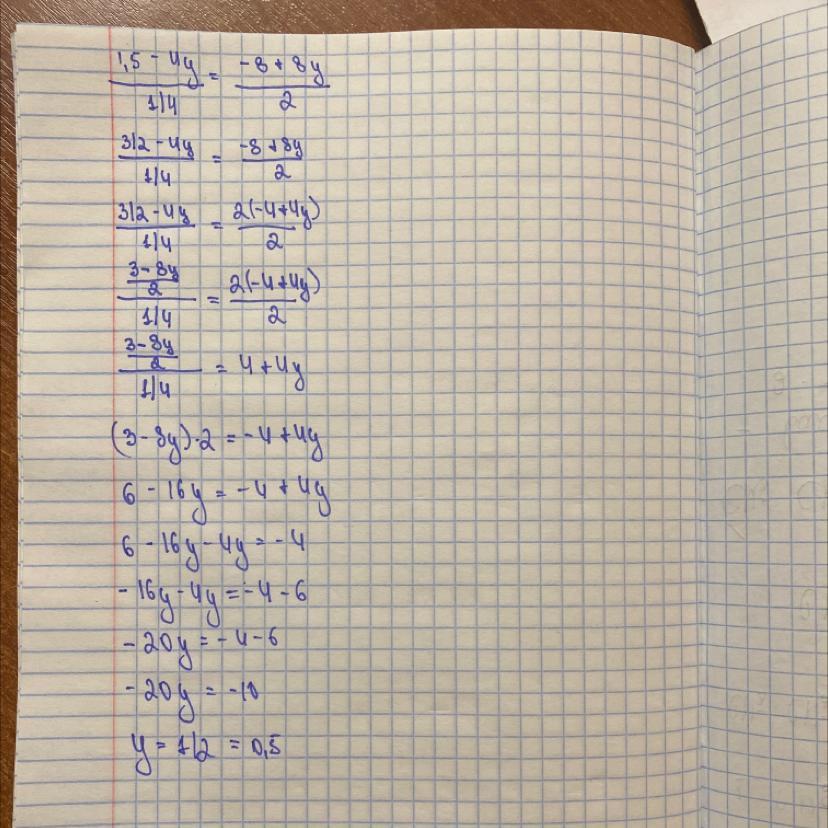 (1,5 - 4y)/(1/4) = (-8 + 8y)/2
(3/2 - 4y)/(1/4) = (-8 + 8y)/2
(3/2 - 4y)/(1/4) = 2(-4+4y)/2
((3 - 8y)/2)/(1/4) = 2(-4+4y)/2
((3 - 8y)/2)/(1/4) = 4 + 4y
(3 - 8y)·2 = -4 + 4y
6 - 16y = -4 + 4y
6 - 16y - 4y = -4
-16y - 4y = -4 - 6
-20y = -4 - 6
-20y = -10
y = 1/2 = 0,5